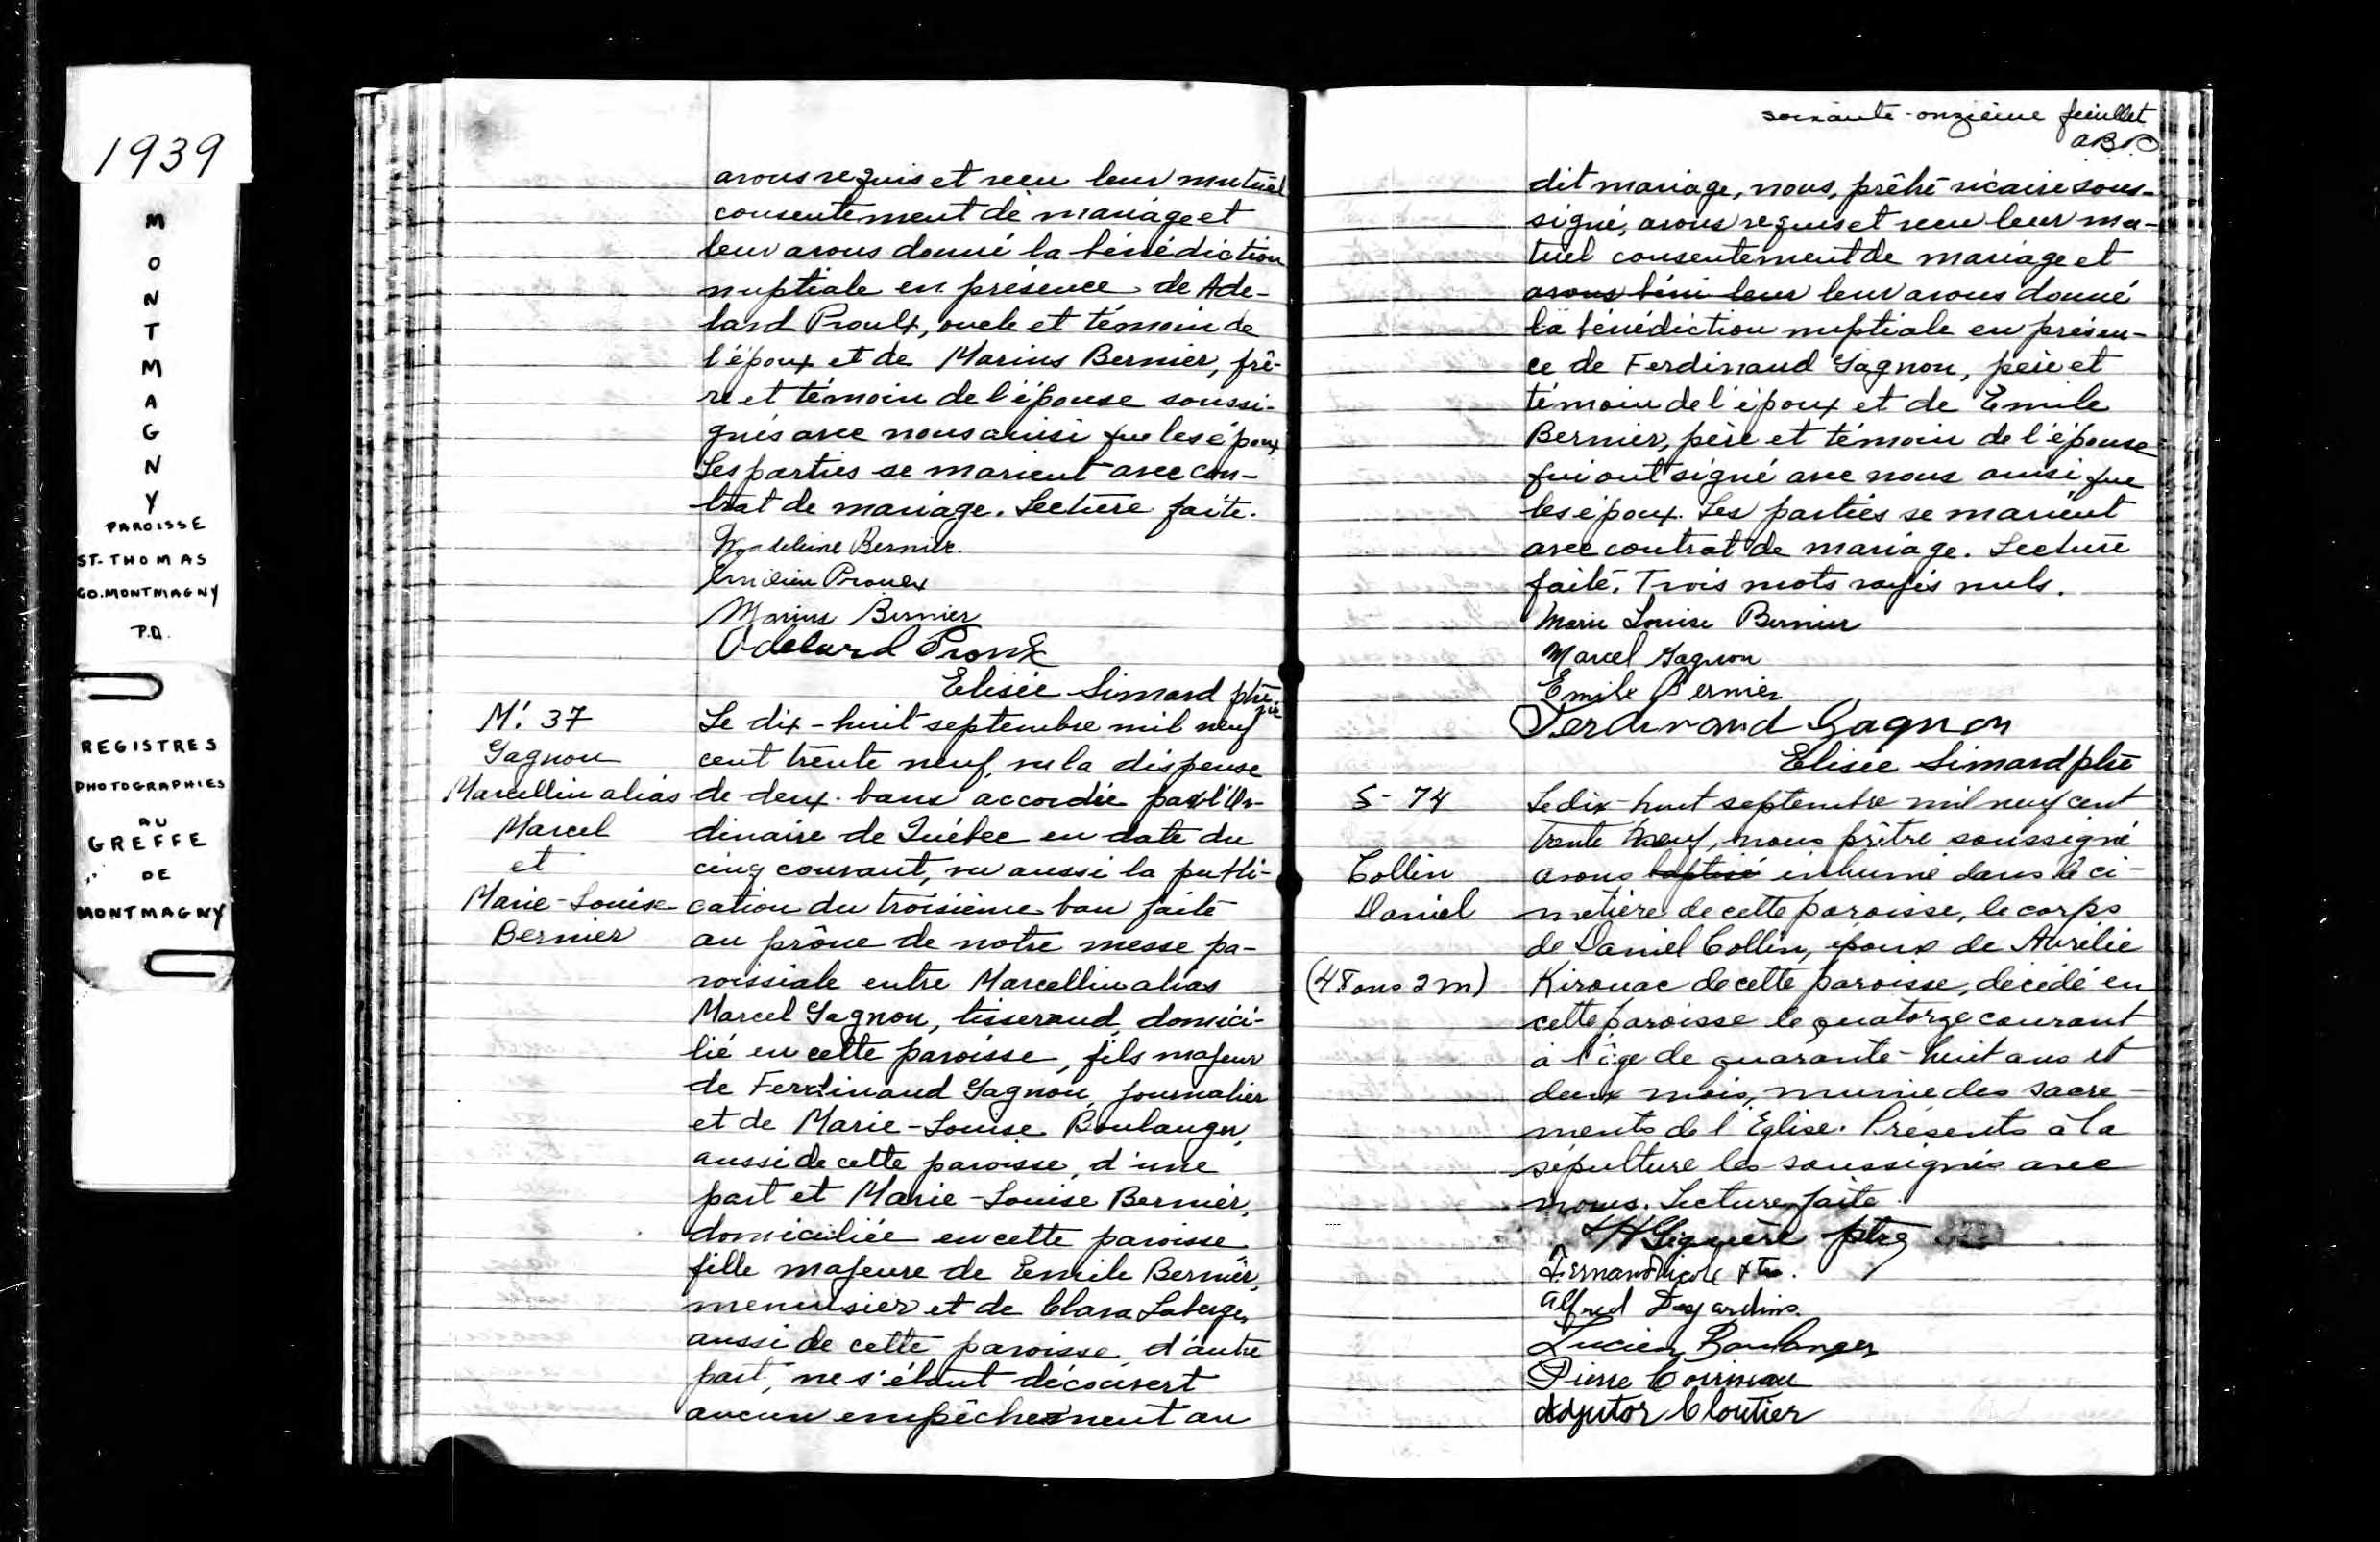 1939
MONTMAGNY
PAROISSE
ST-THOMAS
CO. MONTMAGNY
P.Q.
REGISTRES
PHOTOGRAPHIES
AU
GREFFE
DE
MONTMAGNY
avons requis et reçu leur mutuel
consentement de mariage et
leur avons donné la bénédiction
nuptiale en présence de Ade-
lard Proulx, oncle et témoin de
l'époux et de Marius Bernier, frè-
re et témoin de l'épouse soussi-
gnés avec nous ainsi que les époux
Les parties se marient avec con-
trat de mariage. Lecture faite.
Madeleine Bernier.
Emilien Proulx
Marius Bernier
Adelard Proulx
Elisée Simard ptre vic
M. 37
Gagnon
Marcellin alias
Marcel
et
Marie-Louise
Bernier
Le dix-huit septembre mil neuf
cent trente neuf, vu la dispense
de deux bans accordée par l'Or-
dinaire de Québec en date du
cinq courant, vu aussi la publi-
cation du troisième ban faite
au prône de notre messe pa-
roissiale entre Marcellin alias
Marcel Gagnon, tisserand, domici-
lié en cette paroisse, fils majeur
de Ferdinand Gagnon, journalier
et de Marie-Louise Boulanger,
aussi de cette paroisse, d'une
part et Marie-Louise Bernier,
domiciliée en cette paroisse,
fille majeure de Emile Bernier,
menuisier et de Clara Laberge,
aussi de cette paroisse, d'autre
part, ne s'étant découvert
aucun empêchement au
soixante-onzième feuillet
A.B.P.
dit mariage, nous, prêtre vicaire sous-
signé, avons requis et reçu leur mu-
tuel consentement de mariage et
avons béni leur leur avons donné
la bénédiction nuptiale en présen-
ce de Ferdinand Gagnon, père et
témoin de l'époux et de Emile
Bernier, père et témoin de l'épouse
qui ont signé avec nous ainsi que
les époux. Les parties se marient
avec contrat de mariage. Lecture
faite. Trois mots rayés nuls.
Marie Louise Bernier
Marcel Gagnon
Emile Bernier
Ferdinand Gagnon
Elisée Simard ptre
S-74
Collin
Daniel
(48 ans 2 m)
Le dix-huit septembre mil neuf cent
trente neuf, nous prêtre soussigné
avons baptisé inhumé dans le ci-
metière de cette paroisse, le corps
de Daniel Collin, époux de Aurélie
Kirouac de cette paroisse, décédé en
cette paroisse le quatorze courant
à l'âge de quarante-huit ans et
deux mois, munie des sacre-
ments de l'Eglise. Présents à la
sépulture les soussignés avec
nous. Lecture faite
Giguère ptre
Fernand Nicole
Alfred Desjardins.
Lucien Boulanger
Pierre
Adjutor Cloutier